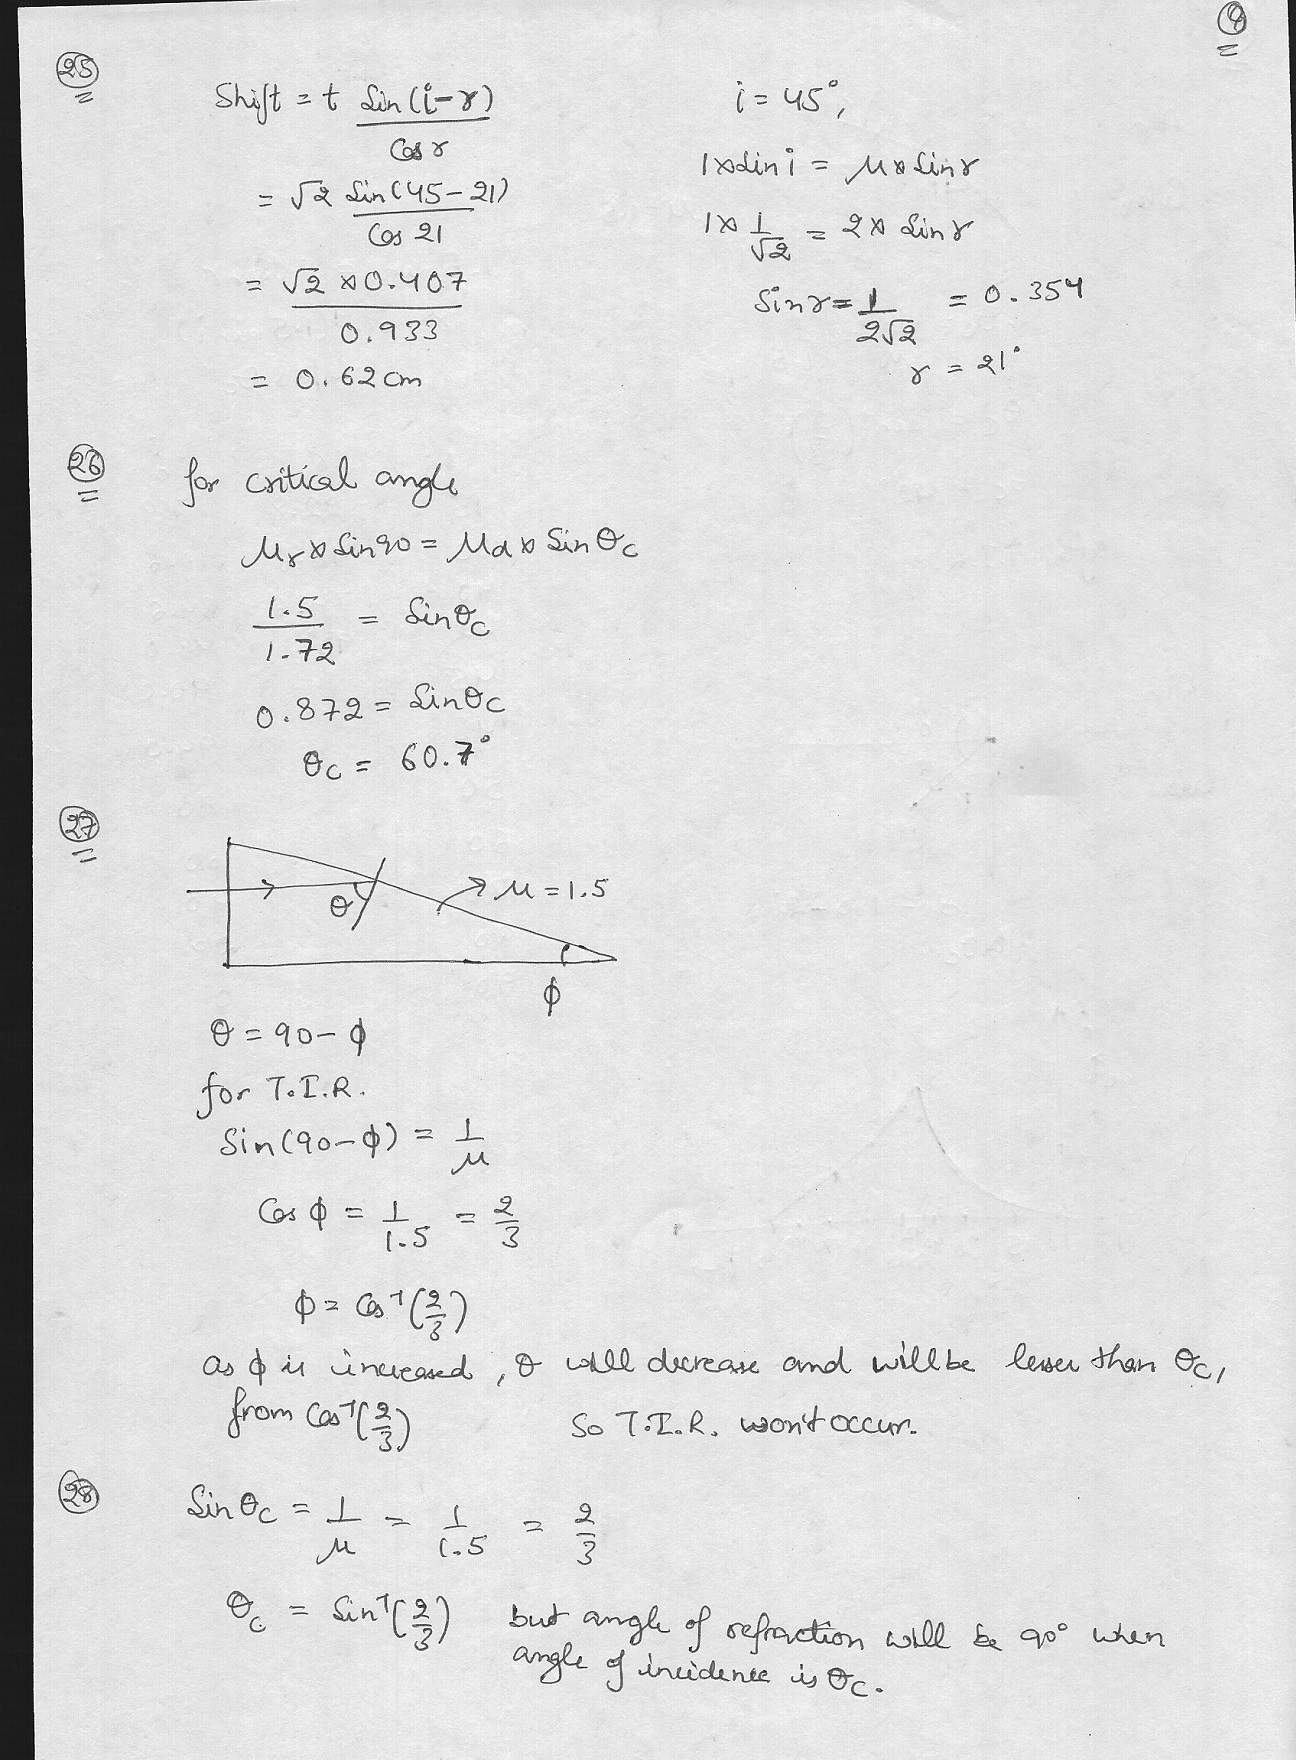 9
25
Shift = t Sin(i-r) / Cos r
= √2 Sin(45-21) / Cos 21
= √2 × 0.407 / 0.933
= 0.62 cm
i = 45°,
1 × sin i = μ × sin r
1 × 1/√2 = 2 × sin r
Sin r = 1/2√2 = 0.354
r = 21°
26
for critical angle
μr × Sin 90 = μd × Sin θc
1.5/1.72 = Sin θc
0.872 = Sin θc
θc = 60.7°
27
θ
μ = 1.5
φ
θ = 90 - φ
for T.I.R.
Sin(90-φ) = 1/μ
Cos φ = 1/1.5 = 2/3
φ = Cos⁻¹(2/3)
as φ is increased, θ will decrease and will be lesser than θc,
from Cos⁻¹(2/3) So T.I.R. won't occur.
28
Sin θc = 1/μ = 1/1.5 = 2/3
θc = Sin⁻¹(2/3) but angle of refraction will be 90° when
angle of incidence is θc.